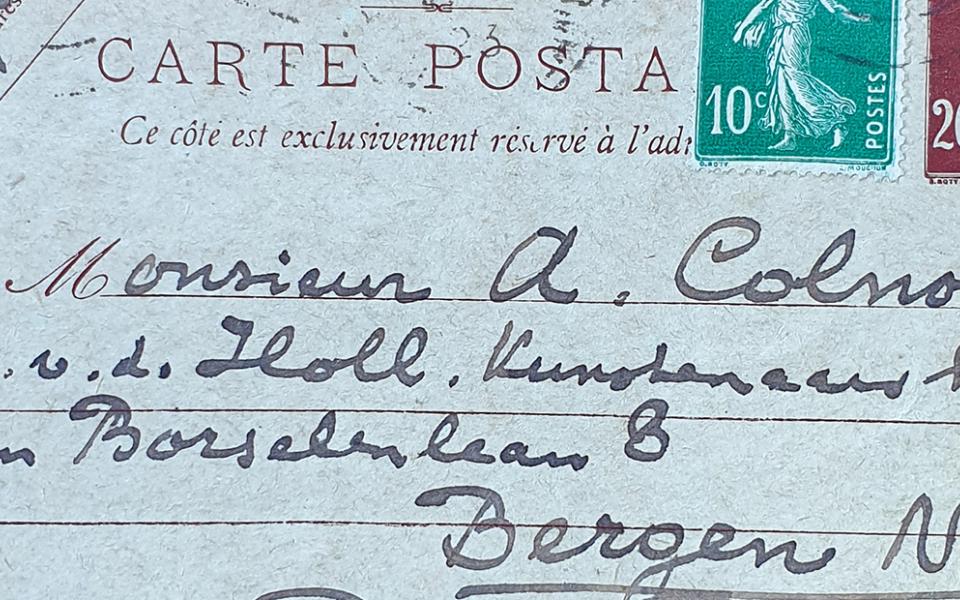 CARTE POSTA
10c POSTES 20
Ce côté est exclusivement réservé à l'adr
Monsieur A. Colno
. v. d. Holl. Kunstenaars
n Borselenlaan 8
Bergen N